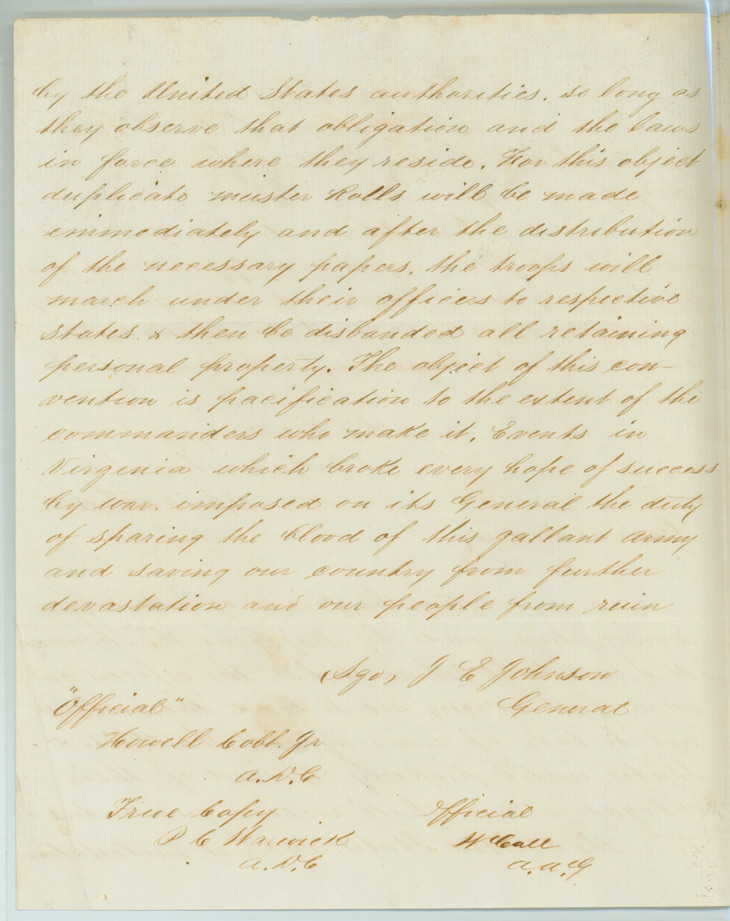 by the United States authorities. so long as
they observe that obligation and the laws
in force where they reside. For this object
duplicate muster Rolls will be made
immediately and after the distribution
of the necessary papers. the troops will
march under their officers to respective
states. & then be disbanded all retaining
personal property. The object of this con-
vention is pacification to the extent of the
commanders who make it. Events in
Virginia which broke every hope of success
by war. imposed on its General the duty
of sparing the blood of this gallant army
and saving our country from further
devastation and our people from ruin
(Sgd) J E Johnson
General
"Official"
Howell Cobb. Jr
A.D.C
True Copy
P C Warwick
A.D.C
Official
A.A.G